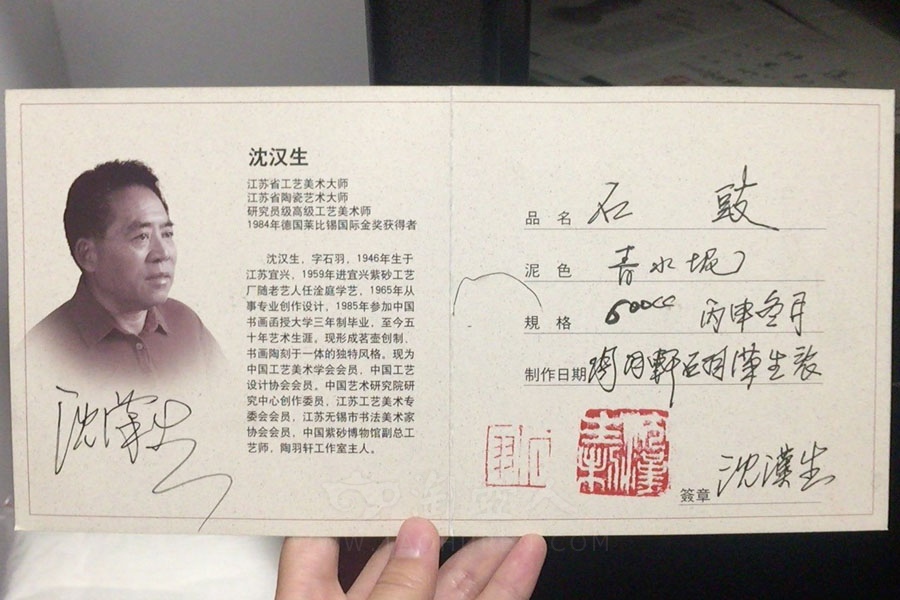 沈汉生
江苏省工艺美术大师
江苏省陶瓷艺术大师
研究员级高级工艺美术师
1984年德国莱比锡国际金奖获得者
沈汉生，字石羽，1946年生于
江苏宜兴，1959年进宜兴紫砂工艺
厂随老艺人任淦庭学艺，1965年从
事专业创作设计，1985年参加中国
书画函授大学三年制毕业，至今五
十年艺术生涯。现形成茗壶创制、
书画陶刻于一体的独特风格。现为
中国工艺美术学会会员，中国工艺
设计协会会员。中国艺术研究院研
究中心创作委员，江苏工艺美术专
委会会员，江苏无锡市书法美术家
协会会员，中国紫砂博物馆副总工
艺师，陶羽轩工作室主人。
沈漢生
品名 石鼓
泥色 青水坭
規格 600cc 丙申冬月
制作日期 陶羽軒石羽漢生製
簽章 沈漢生